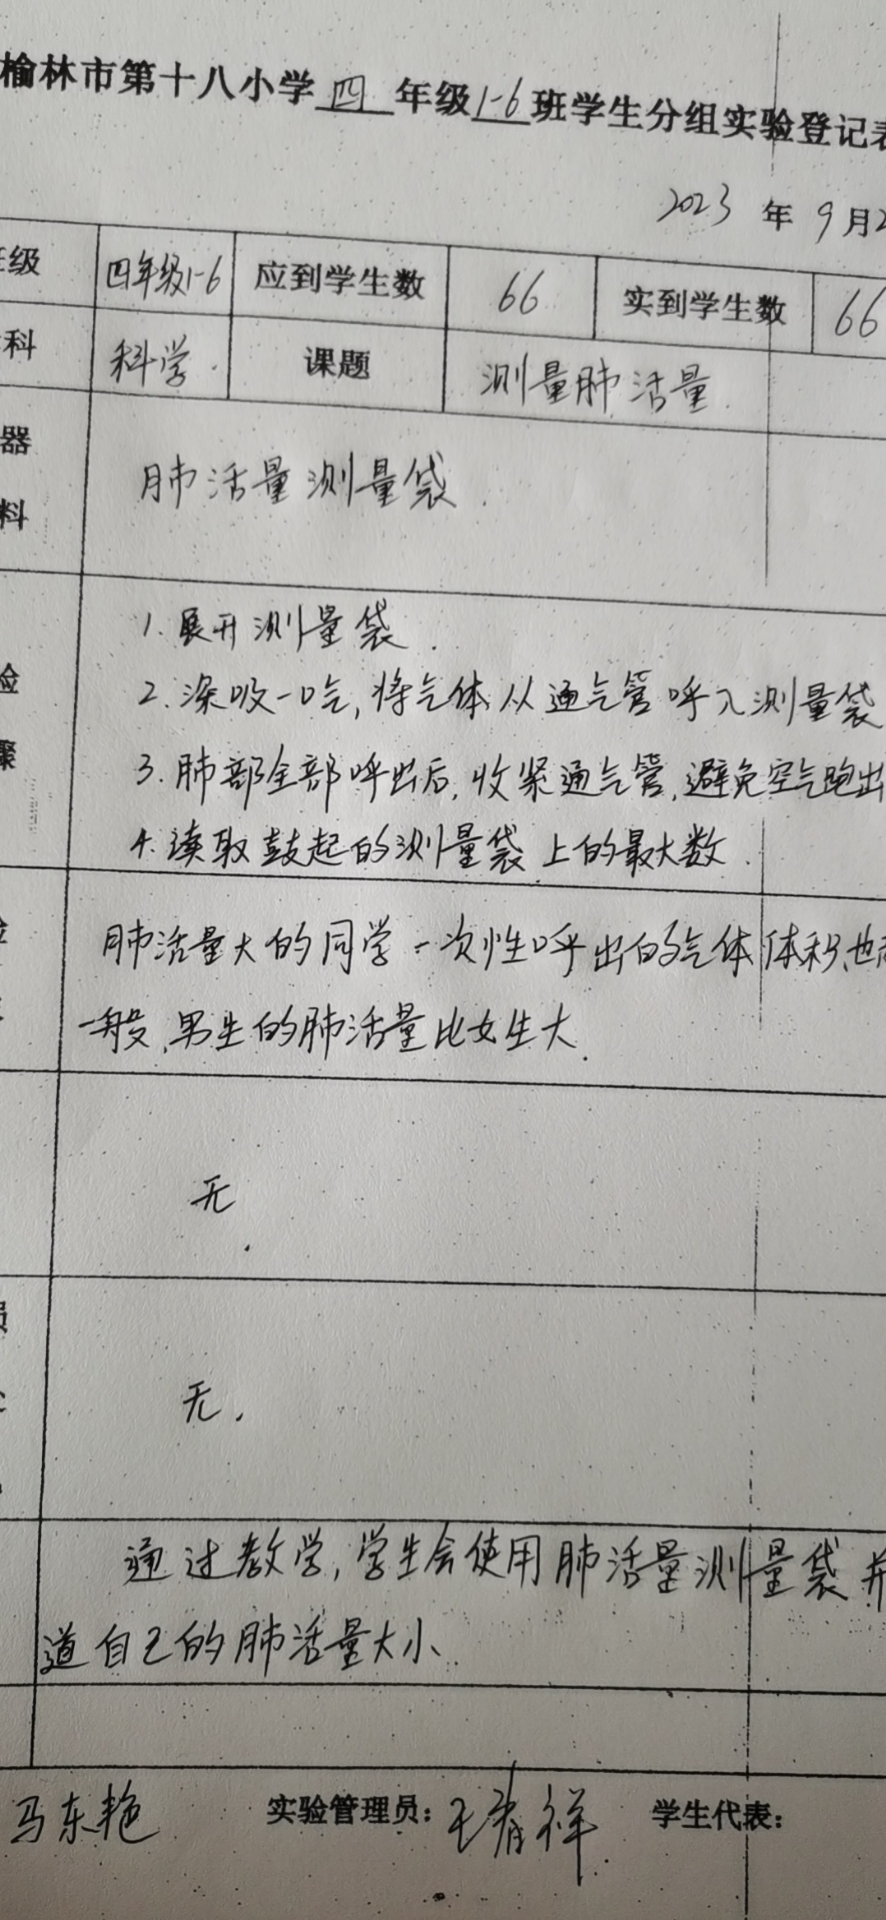 榆林市第十八小学四年级1-6班学生分组实验登记表
2023年9月2
班级 四年级1-6 应到学生数 66 实到学生数 66
科 科学. 课题 测量肺活量.
器 肺活量测量袋.
料
1. 展开测量袋.
验 2. 深吸一口气,将气体从通气管呼入测量袋
骤 3. 肺部全部呼出后,收紧通气管,避免空气跑出
4. 读取鼓起的测量袋上的最大数.
验 肺活量大的同学一次性呼出的气体体积也
一般,男生的肺活量比女生大.
无.
无.
通过教学,学生会使用肺活量测量袋并
道自己的肺活量大小.
马东艳 实验管理员: 学生代表: